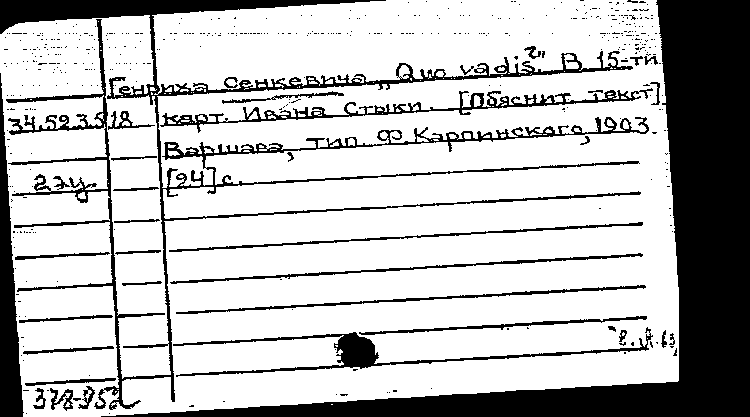 Генриха Сенкевича „Quo vadis?" В 15-ти
34.52.3.518 карт. Ивана Стыки. [Объяснит. текст]
Варшава, тип. Ф. Карпинского, 1903
2 эк. [24] с.
378-95